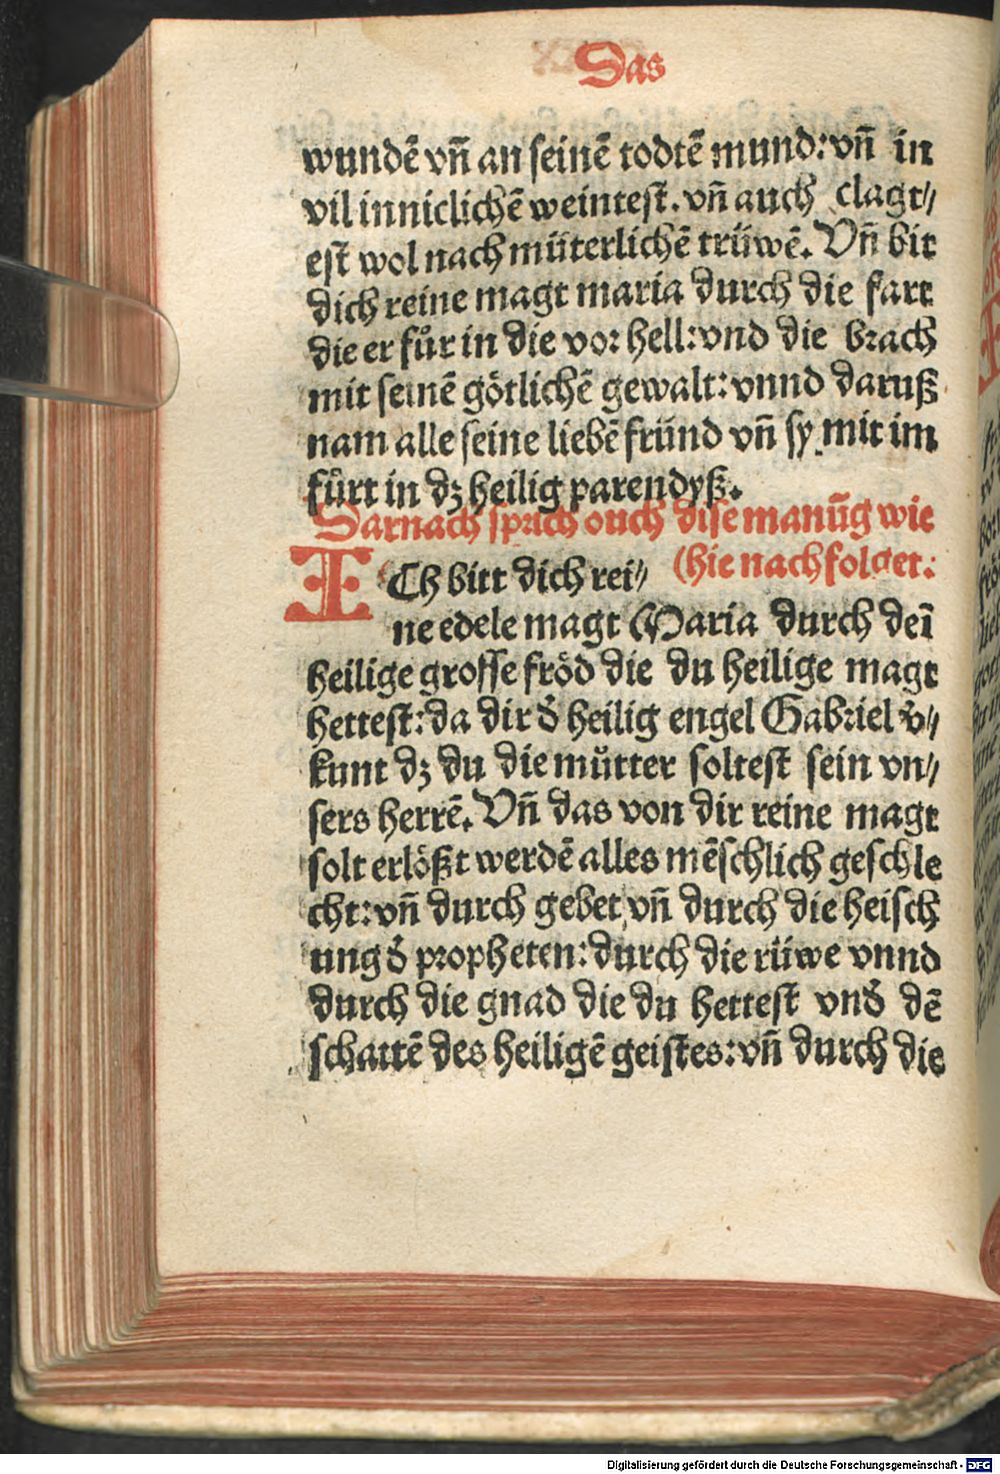 Das
wundē vn̄ an seinē todtē mund: vn̄ in
vil inniclichē weintest. vn̄ auch clagt⸗
est wol nach müterlichē trüwē. Vn̄ bit
dich reine magt maria durch die fart
die er fůr in die vor hell: vnd die brach
mit seinē götlichē gewalt: vnnd daruß
nam alle seine liebē fründ vn̄ sy mit im
fůrt in dz heilig paredyß.
Darnach sprich ouch dise manūg wie
(hie nach folget.
ICh bitt dich rei⸗
ne edele magt Maria durch deī
heilige grosse fröd die du heilige magt
hettest: da dir d̕ heilig engel Gabriel v̕⸗
kunt dz du die můtter soltest sein vn⸗
sers herrē. Vn̄ das von dir reine magt
solt erlößt werdē alles mēschlich geschle
cht: vn̄ durch gebet vn̄ durch die heisch
ung d̕ propheten: durch die rüwe vnnd
durch die gnad die du hettest vnd̕ dē
schattē des heiligē geistes: vn̄ durch die
Digitalisierung gefördert durch die Deutsche Forschungsgemeinschaft - DFG